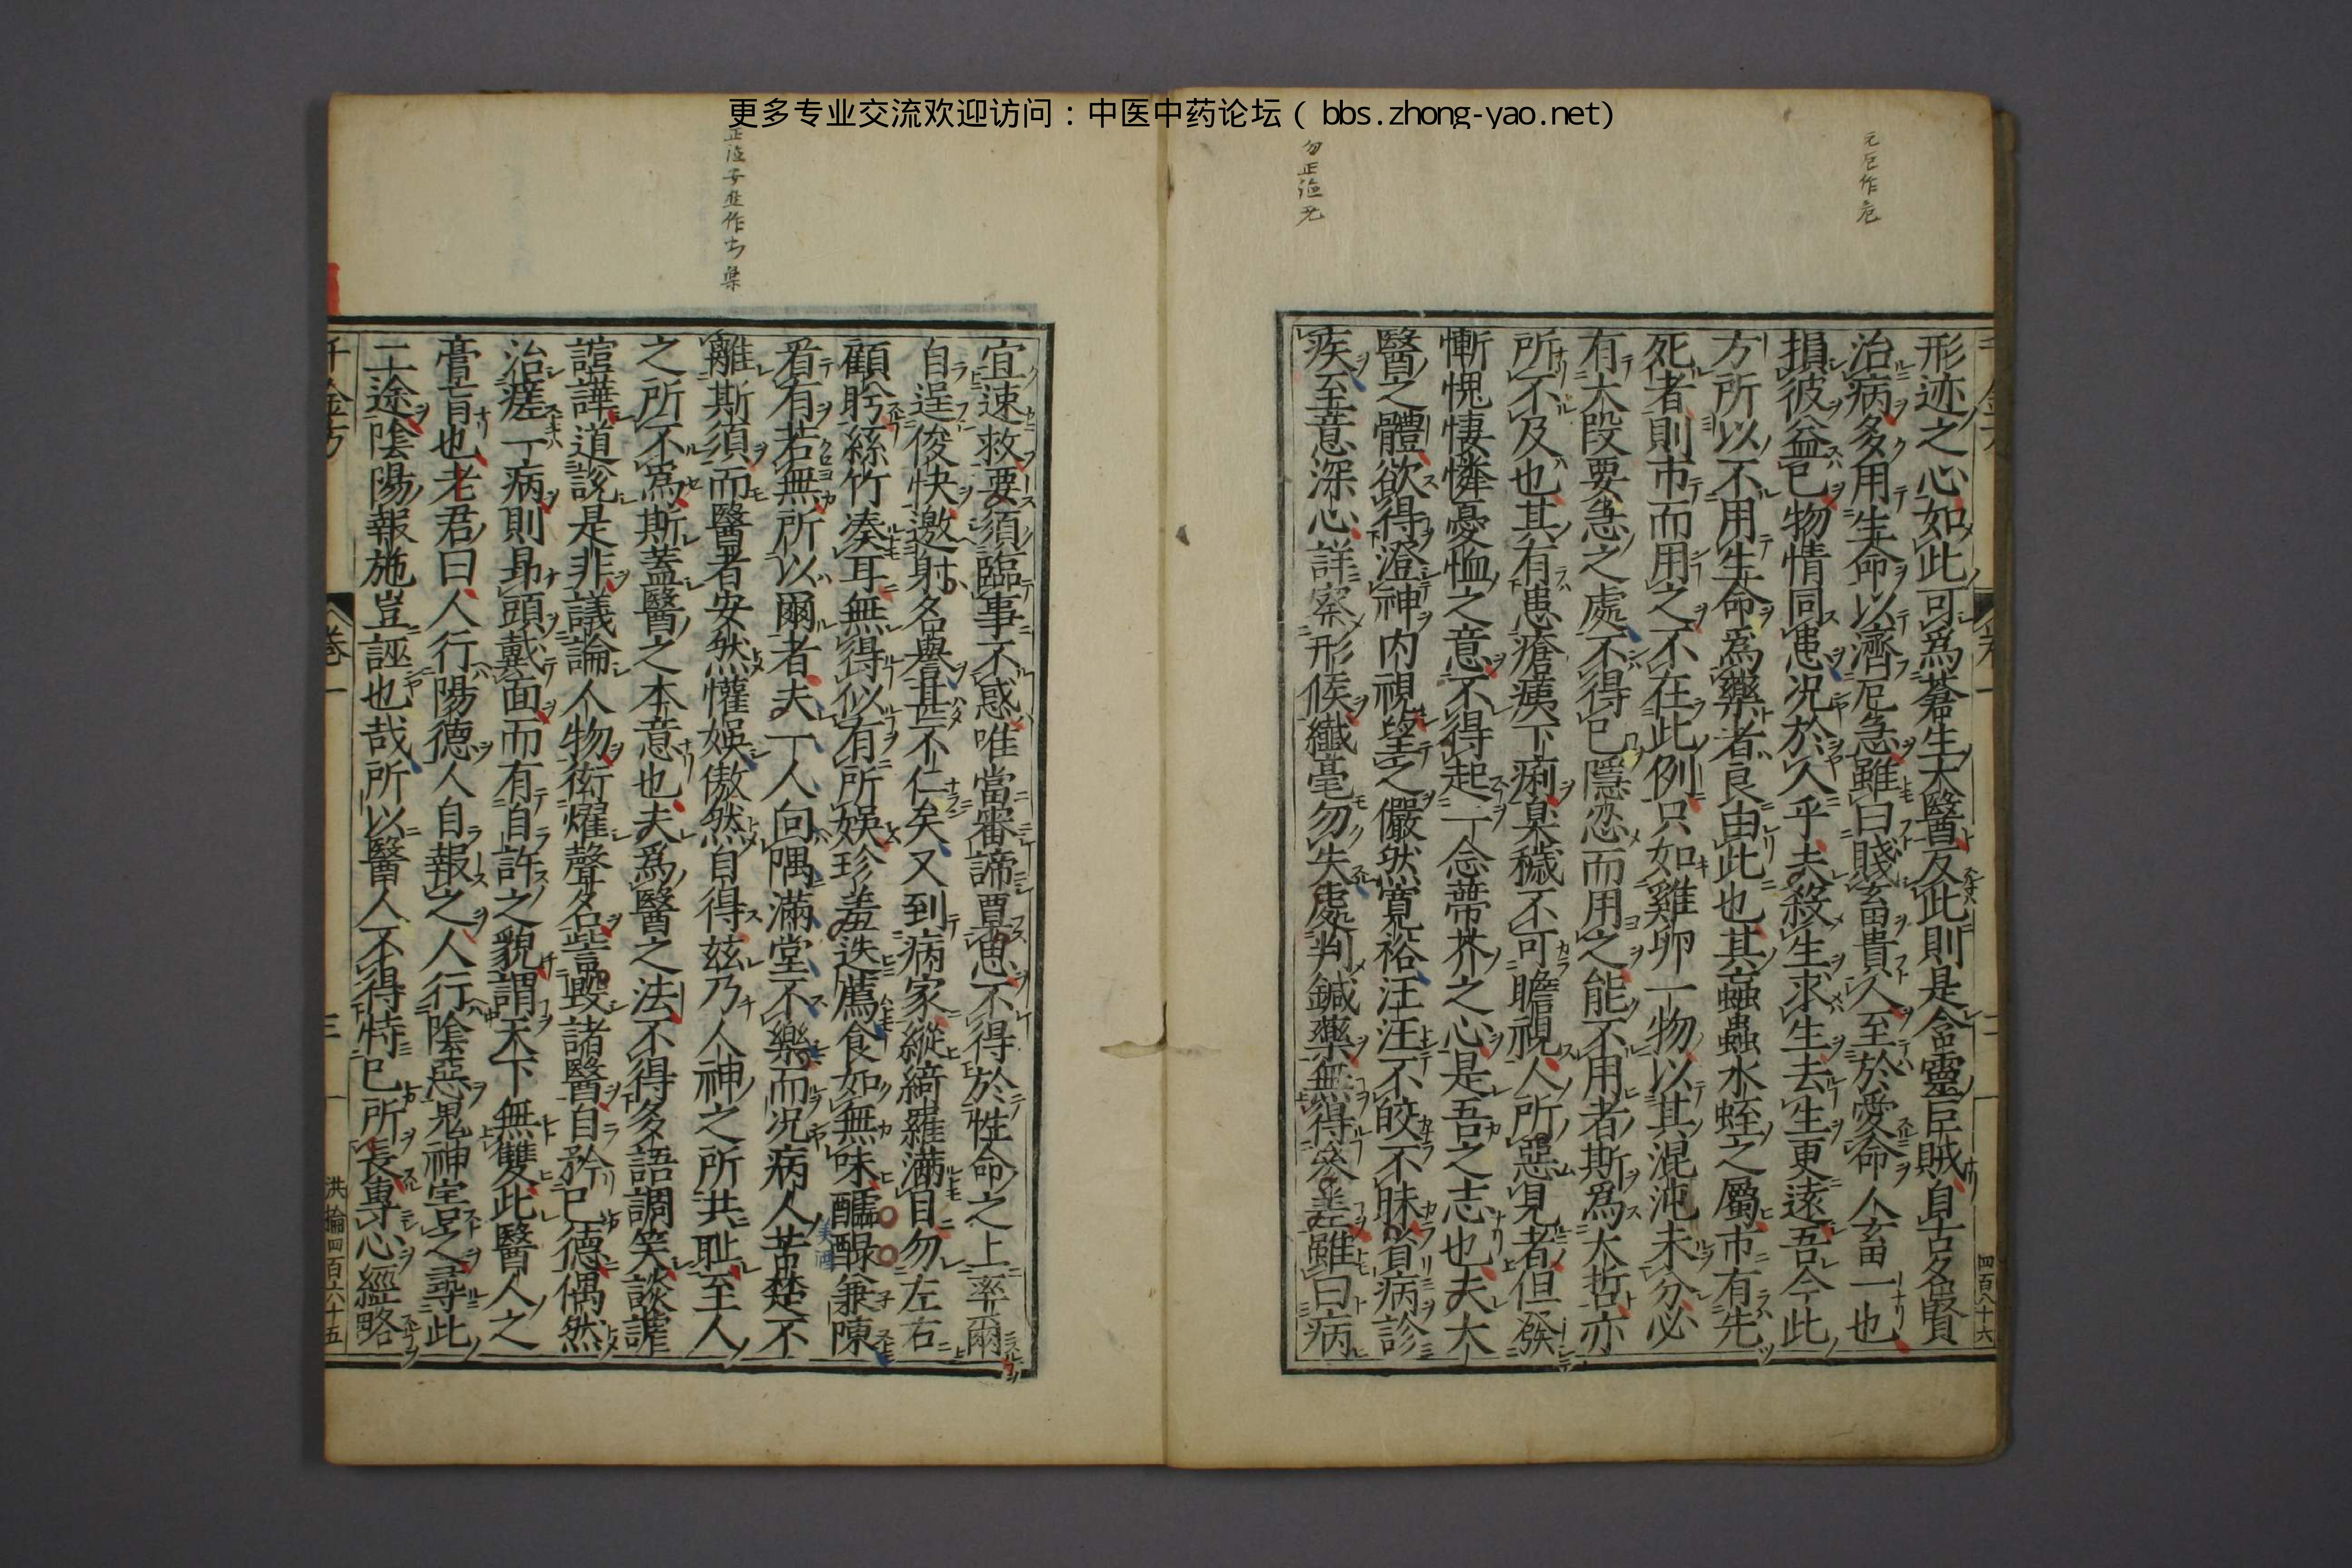 更多专业交流欢迎访问：中医中药论坛（bbs.zhong-yao.net）
形迹之心如此可爲蒼生大醫反此則是含靈巨賊自古名賢
治病多用生命以濟危急雖曰賤畜貴人至於愛命人畜一也
損彼益已物情同患况於人乎夫殺生求生去生更遠吾今此
方所以不用生命爲藥者良由此也其䖟蟲水蛭之屬市有先
死者則市而用之不在此例只如雞卵一物以其混沌未分必
有大段要急之處不得已隱忍而用之能不用者斯爲大哲亦
所不及也其有患瘡痍下痢臭穢不可瞻視人所惡見者但發
慚愧悽憐憂恤之意不得起一念蔕芥之心是吾之志也夫大
醫之體欲得澄神内視望之儼然寛裕汪汪不皎不昧省病診
疾至意深心詳察形候纎毫勿失處判鍼藥無得參差雖曰病
四百八十六
宜速救要須臨事不惑唯當審諦覃思不得於性命之上率爾
自逞俊快邀射名譽甚不仁矣又到病家縱綺羅滿目勿左右
顧眄絲竹湊耳無得似有所娱珍羞迭薦食如無味醽醁兼陳
看有若無所以爾者夫一人向隅滿堂不樂而况病人苦楚不
美酒
離斯須而醫者安然懽娱傲然自得兹乃人神之所共耻至人
之所不爲斯蓋醫之本意也夫爲醫之法不得多語調笑談謔
諠譁道說是非議論人物衒燿聲名訾毀諸醫自矜已德偶然
治瘥一病則昻頭戴面而有自許之貌謂天下無雙此醫人之
膏肓也老君曰人行陽德人自報之人行陰惡鬼神害之尋此
二途陰陽報施豈誣也哉所以醫人不得恃已所長專心經略
千金方 卷一 三 洪掄四百六十五